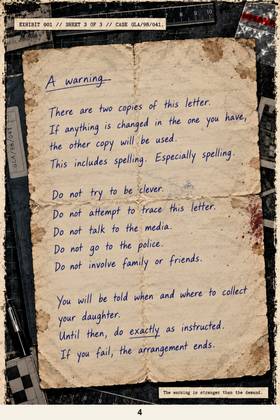 EXHIBIT 001 // SHEET 3 OF 3 // CASE GLA/98/041.
A warning
There are two copies of this letter.
If anything is changed in the one you have,
the other copy will be used.
This includes spelling. Especially spelling.
Do not try to be clever.
Do not attempt to trace this letter.
Do not talk to the media.
Do not go to the police.
Do not involve family or friends.
You will be told when and where to collect
your daughter.
Until then, do exactly as instructed.
If you fail, the arrangement ends.
The wording is stranger than the demand.
4